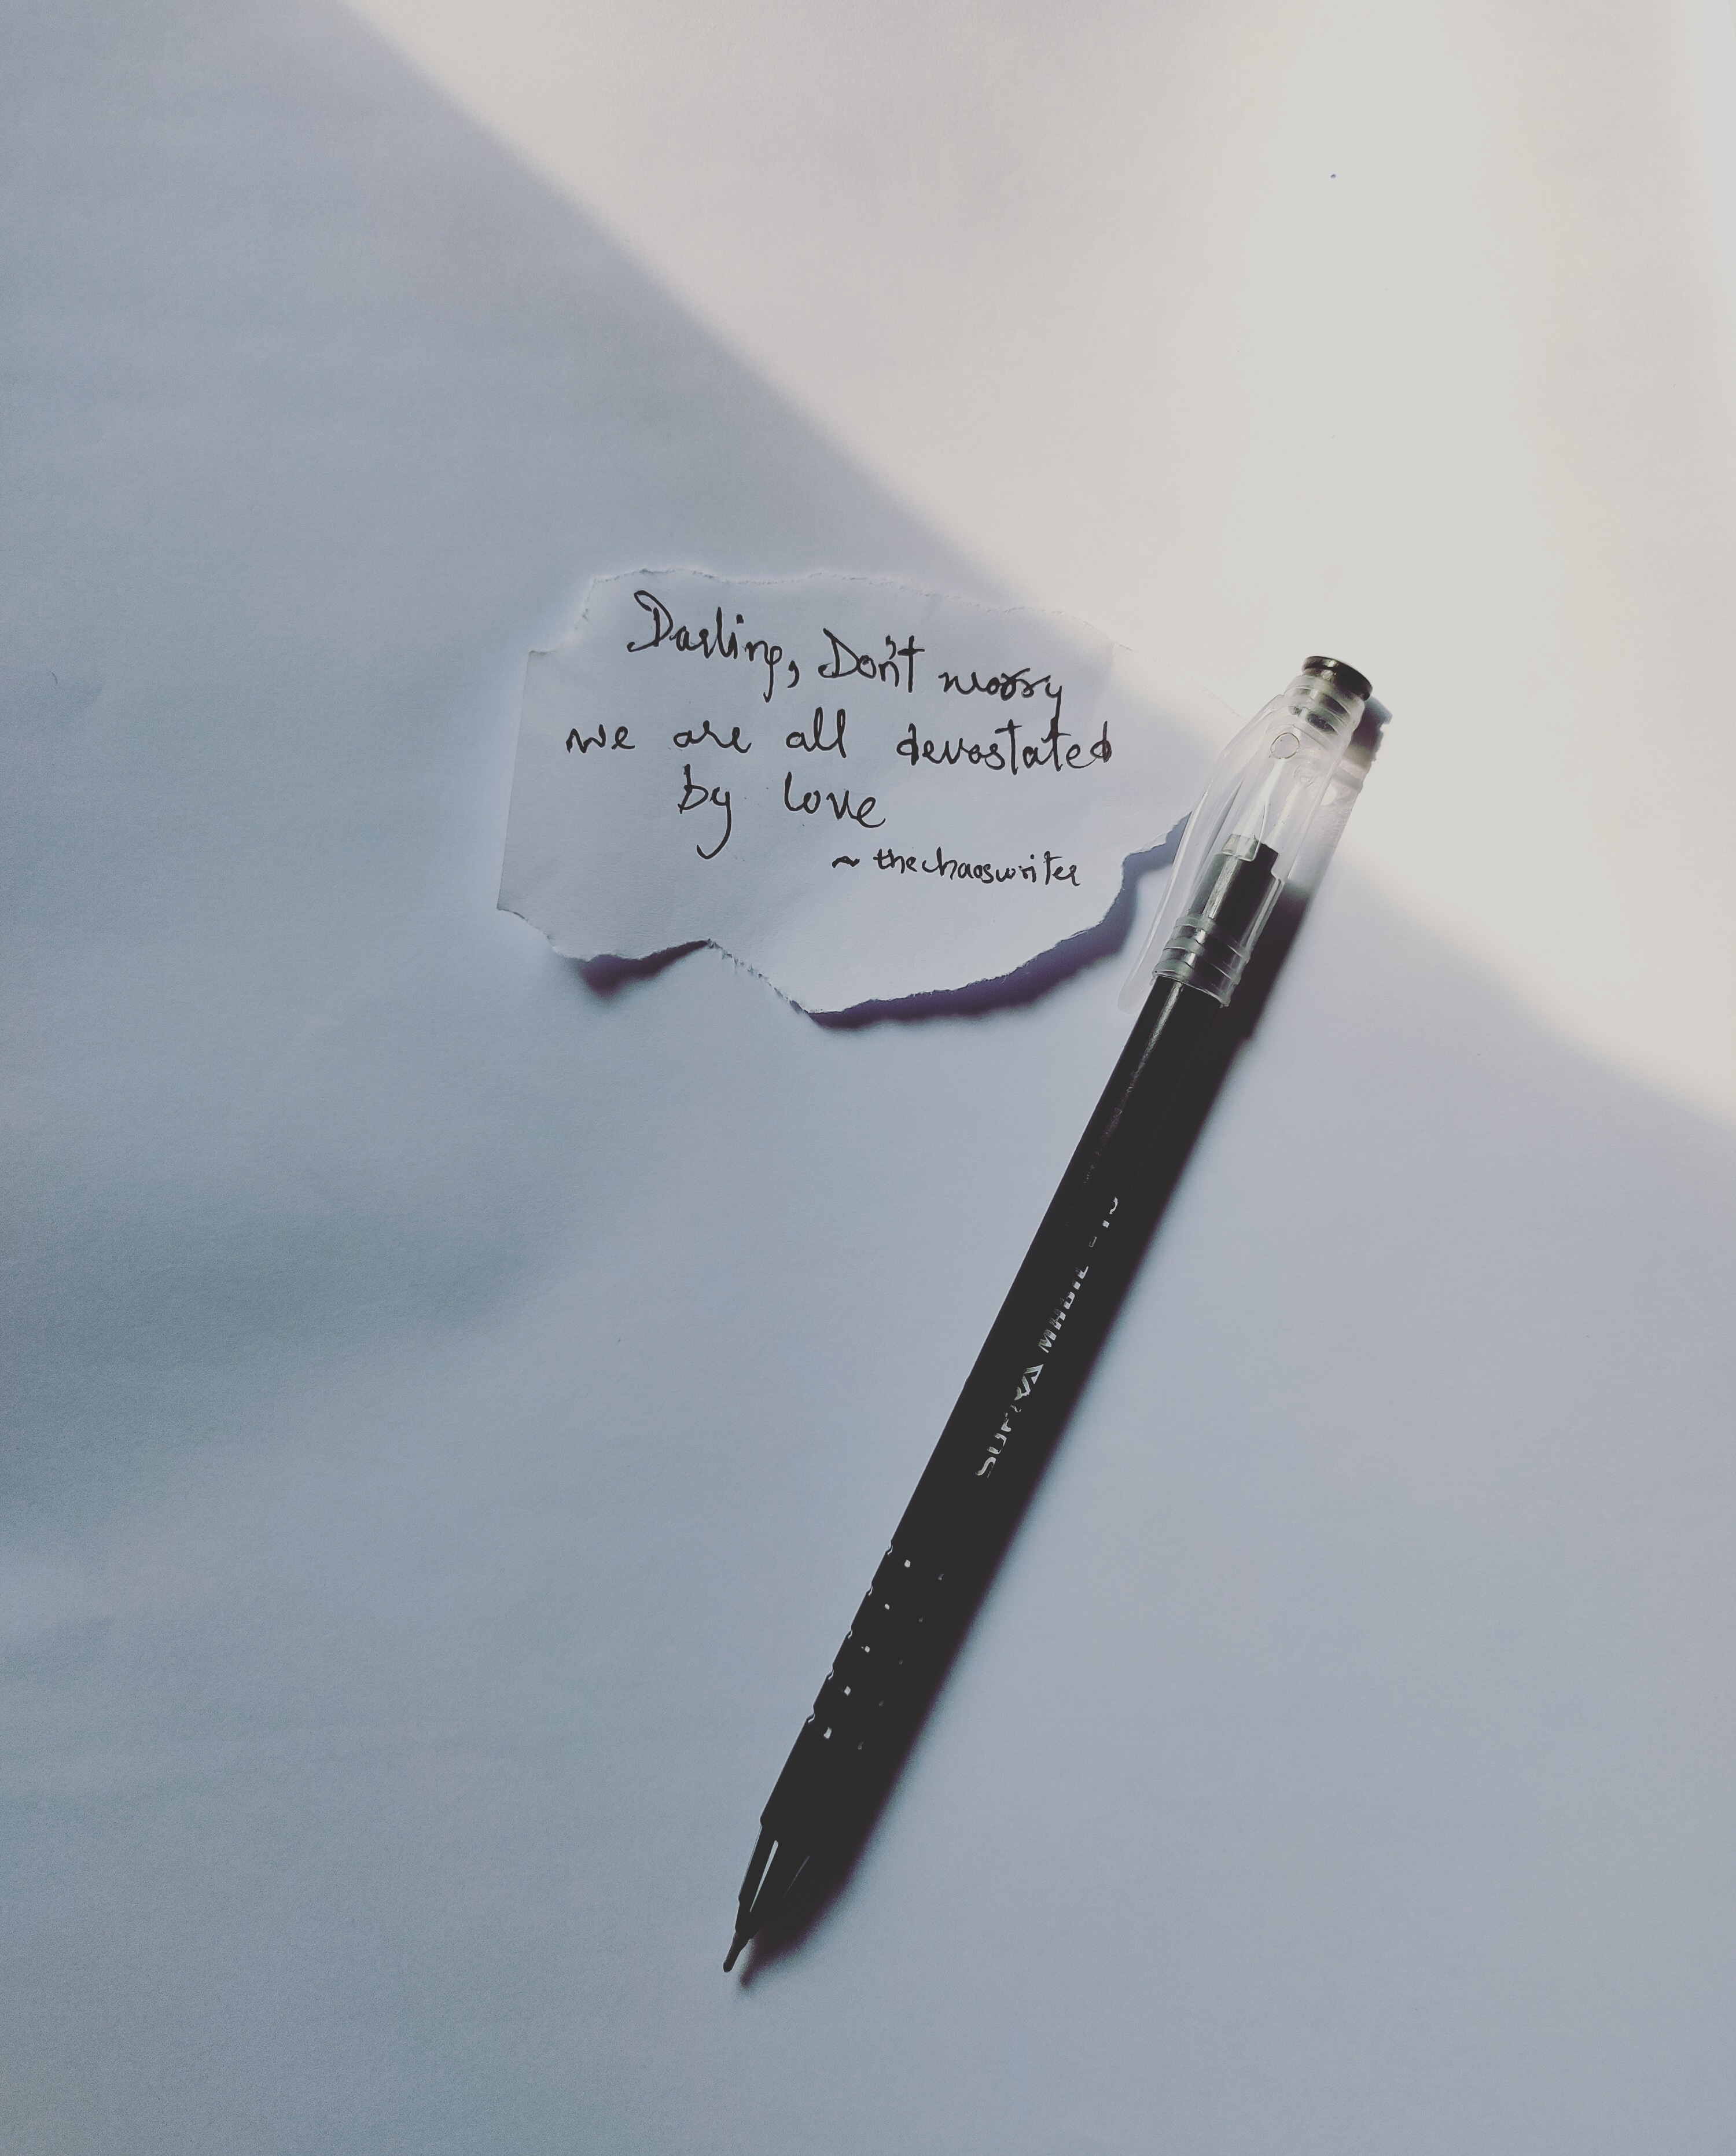 Darling, Don't worry
we are all devastated
by love
~ thechaoswriter